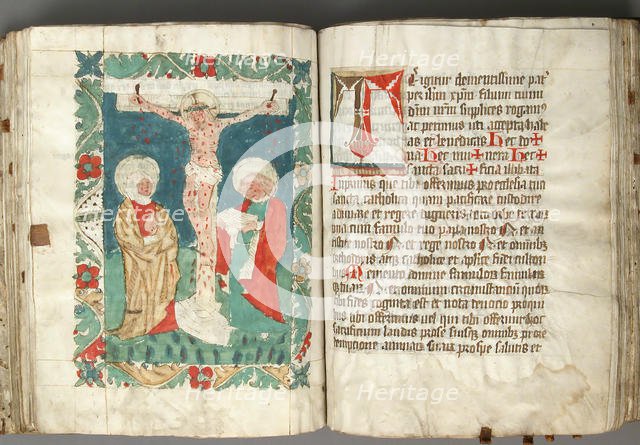 Heritage
Heritage
Heritage
Heritage
Heritage
Heritage
T
e igitur clementissime pat
per ihm xpm filium tuum
dnm nrm suplices rogam
ac petimus uti accepta habe
as et benedicas hec do
na hec mu nera hec
sancta sacri ficia illibata
Inprimis que tibi offerimus pro ecclesia tua
sancta catholica quam pacificare custodire
adunare et regere digneris
una cum famulo tuo papa nostro et an
tistite nostro et rege nostro et omnibus
orthodoxis atque catholice et apostolice fidei cultori
bus Memento domine famulorum famularum
circumstancium quorum
tibi fides cognita est et nota devocio pro qui
bus tibi offerimus vel qui tibi offerunt hoc
sacrificium laudis pro se suisque omnibus pro re
dempcione animarum suarum pro spe salutis et